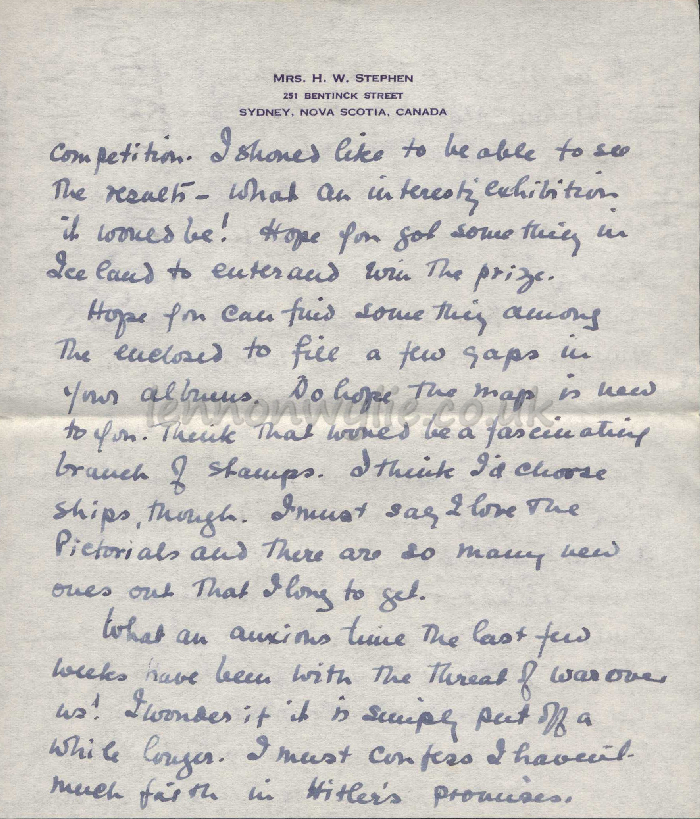 MRS. H. W. STEPHEN
251 BENTINCK STREET
SYDNEY, NOVA SCOTIA, CANADA
Competition. I should like to be able to see
the results – what an interesting exhibition
it would be! Hope you got something in
Iceland to enter and win the prize.
Hope you can find something among
the enclosed to fill a few gaps in
your albums. Do hope the map is new
lennonwylie.co.uk
to you. Think that would be a fascinating
branch of stamps. I think I'd choose
ships, though. I must say I love the
Pictorials and there are so many new
ones out that I long to get.
What an anxious time the last few
weeks have been with the threat of war over
us! I wonder if it is simply put off a
while longer. I must confess I haven't
much faith in Hitler's promises.